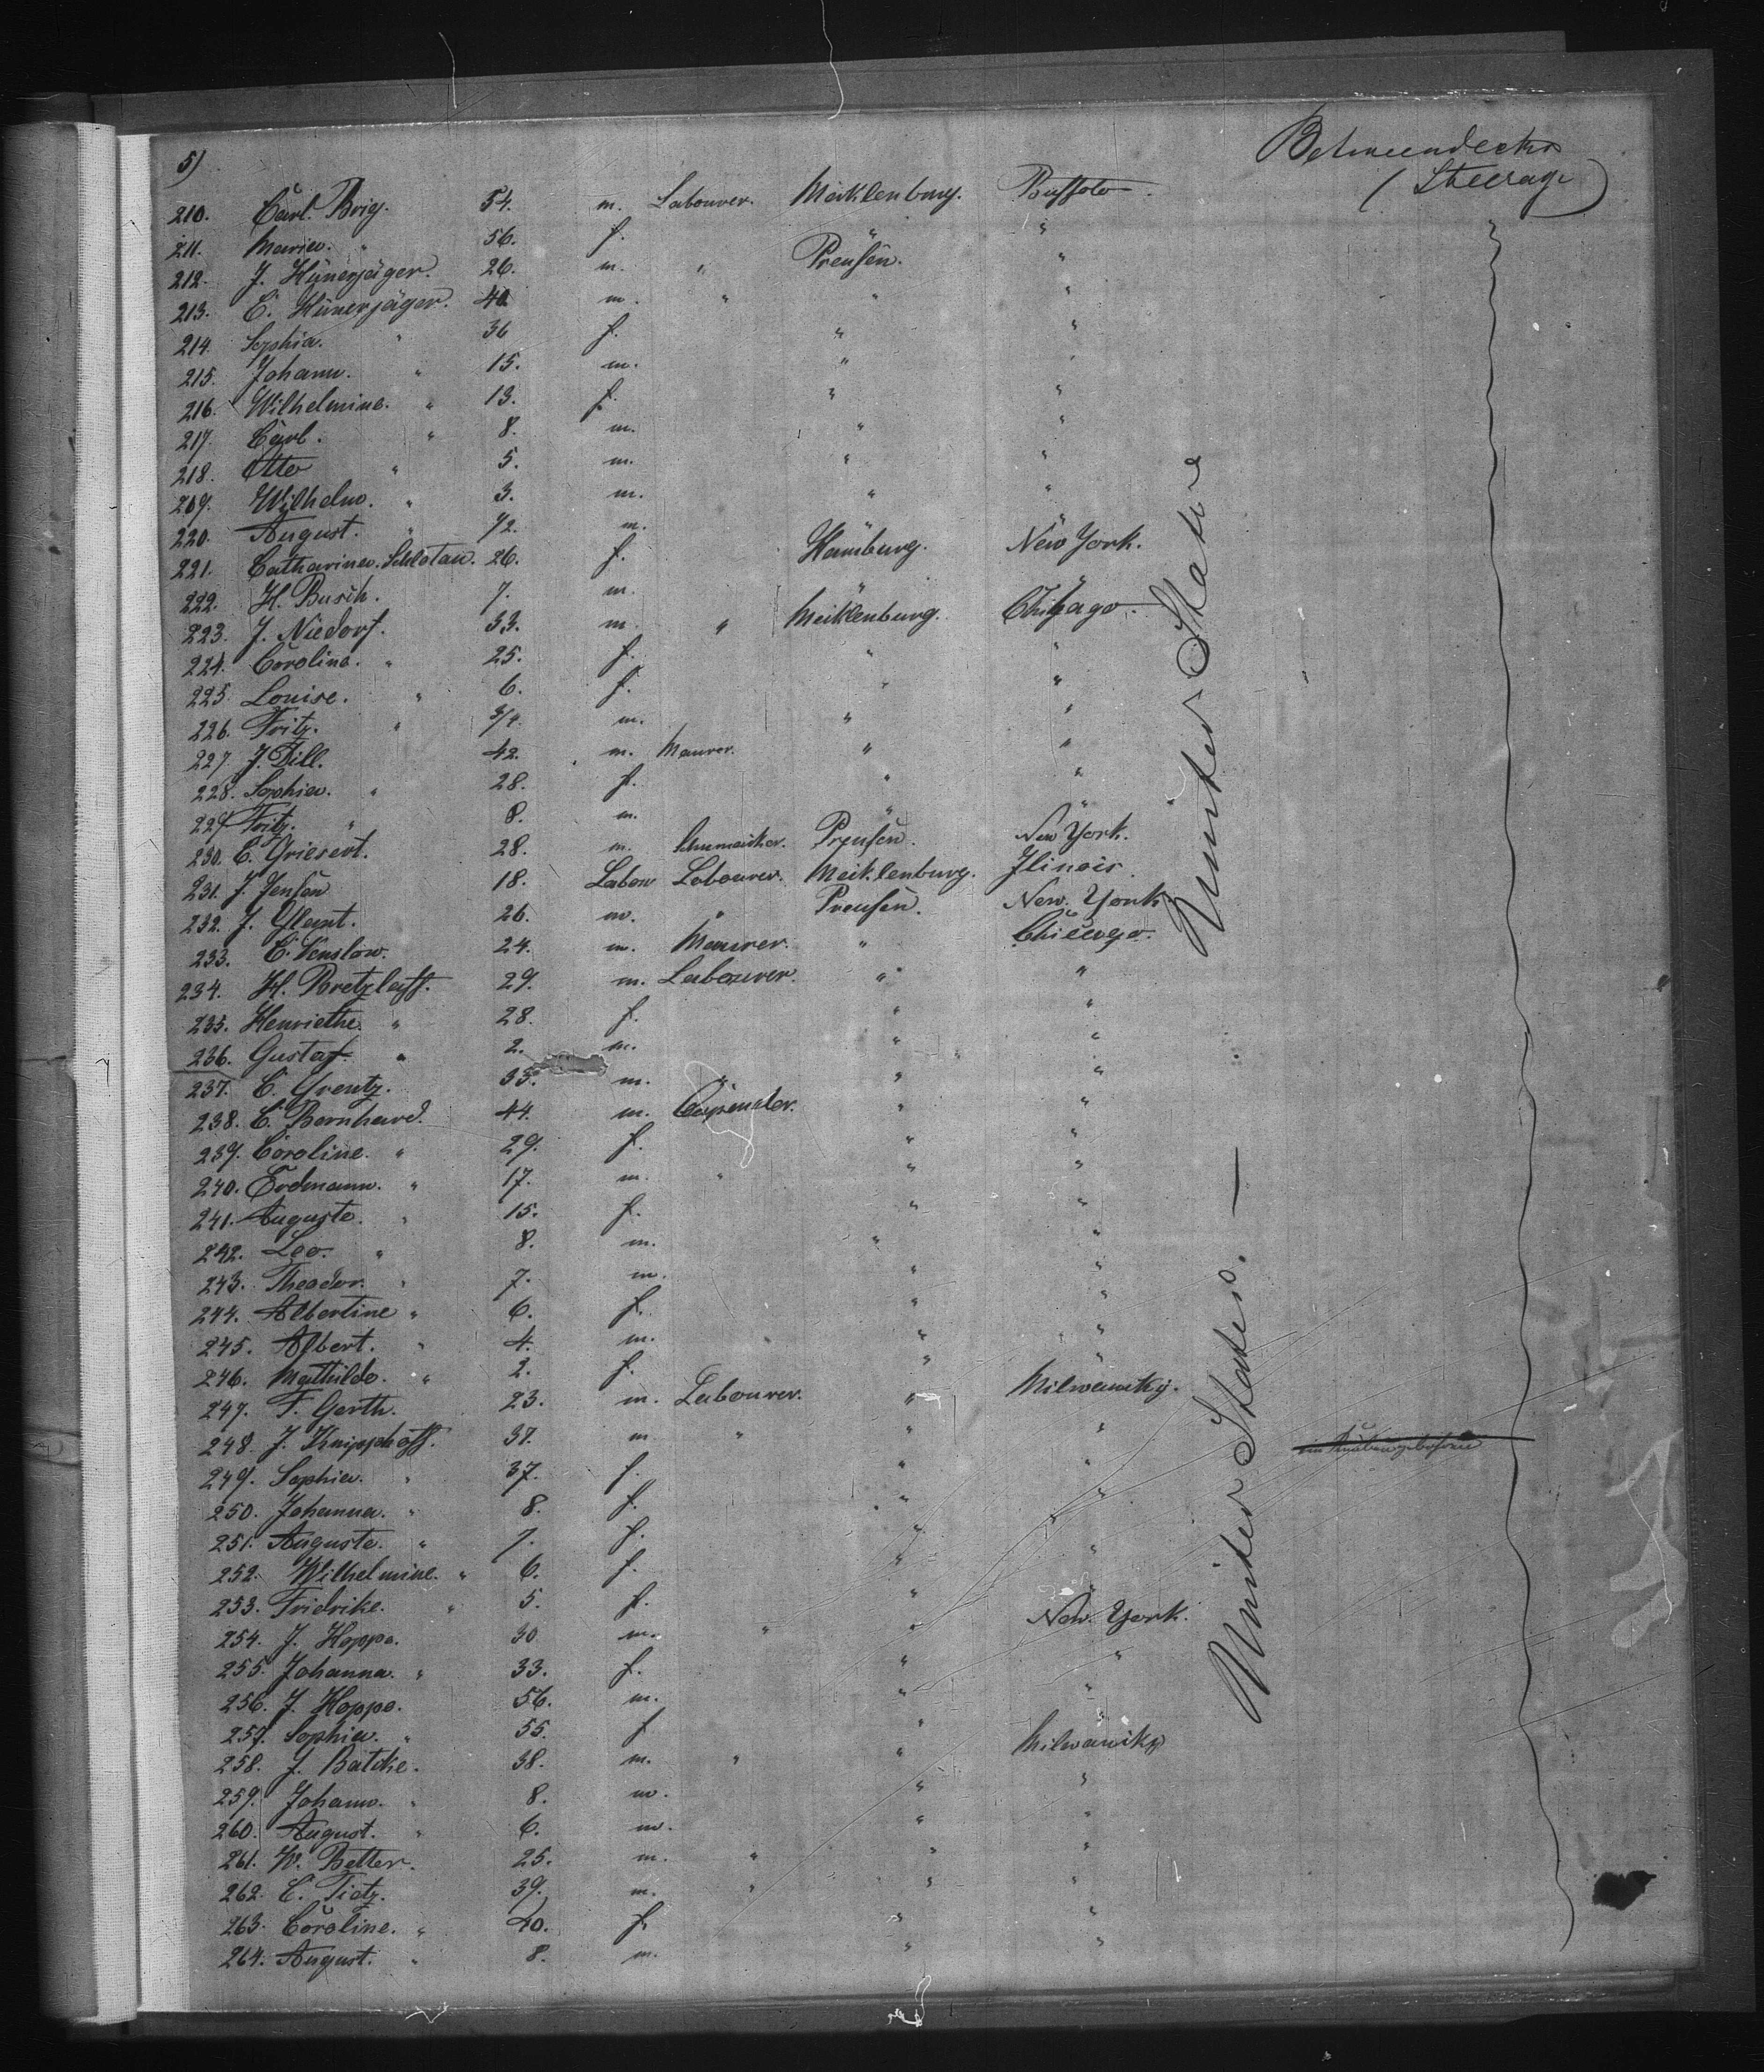 5)
Betweendecks
(Steerage)
210. Carl Brig. 54. m. Labourer. Mecklenburg. Buffolo.
211. Maria. " 56. f. " "
212. J. Hünerjäger. 26. m. " Preußen. "
213. C. Hünerjäger. 40 m. " " "
214. Sophia. " 36 f. " "
215. Johann. " 15. m. " "
216. Wilhelmine. " 13. f. " "
217. Carl. " 8. m. " "
218. Otto " 5. m. " "
219. Wilhelm. " 3. m. " "
220. August. " 1/2. m. "
221. Catharina. Schlotau. 26. f. Hamburg. New York.
222. H. Busch. 7. m. " "
223. J. Niedorf. 33. m. " Mecklenburg. Chicago.
224. Caroline. " 25. f. " "
225. Louise. " 6. f. " "
226. Fritz. " 3/4. m. " "
227. J. Till. 42. m. Maurer. " "
228. Sophia. " 28. f. " "
229 Fritz. " 8. m. " "
230. C. Griesert. 28. m. Schumacher. Preußen. New York.
231. J. Jenßen 18. Labou Labourer. Mecklenburg. Ilinois.
232. J. 26. m. " Preußen. New. York
233. C. Venslow. 24. m. Maurer. " Chicago.
234. H. Bretzlaff. 29. m. Labourer. " "
235. Henriethe. " 28. f. " "
236. Gustaf. " 2. m. " "
237. C. Grentz. 35. m. " " "
238. C. Bernhard. 44. m. Carpender. " "
239. Caroline. " 29. f. " "
240. Erdmann. " 17. m. " " "
241. Auguste. " 15. f. " "
242. Leo. " 8. m. " "
243. Theodor. " 7. m. " "
244. Albertine " 6. f. " "
245. Albert. " 4. m. " "
246. Mathilde. " 2. f. " "
247. F. Gerth. 23. m. Labourer. " Milwauky.
248. J. Knipphoff. 37. m. " " "
249. Sophia. " 37. f. " "
250. Johanna. " 8. f. " "
251. Auguste. " 7. f. "
252. Wilhelmine. " 6. f. " "
253. Fridrike. " 5. f. " "
254. J. Hoppe. 30 m. " " New. York.
255. Johanna. " 33. f. " "
256. J. Hoppe. 56. m. " "
257. Sophia. " 55. f " "
258. J. Batcke. 38. m. " " Milwauky
259. Johann. " 8. m. " "
260. August. " 6. m. " "
261. W. Better. 25. m. " " "
262. C. Tietz. 39. m. " " "
263. Caroline. " 40. f. " "
264. August. " 8. m. " "
United States
United States. —